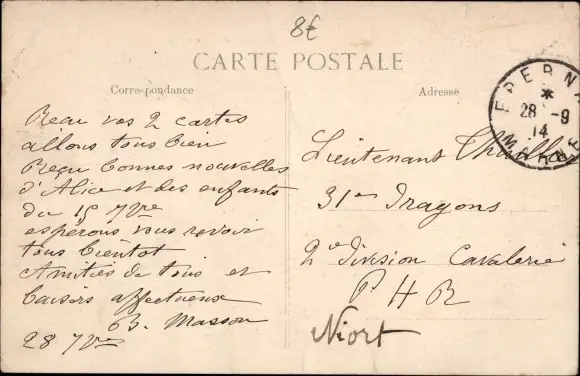 8€
CARTE POSTALE
Correspondance
Adresse
EPERNAY
*
28 -9
14
MARNE
Reçu vos 2 cartes
allons tous bien
Reçu bonnes nouvelles
d'Alice et des enfants
du 15 7bre
espérons vous revoir
tous bientôt
Amitiés de tous et
baisers affectueux
B. Masson
28 7bre
Lieutenant
31e Dragons
2e division Cavalerie
P. H R
Niort